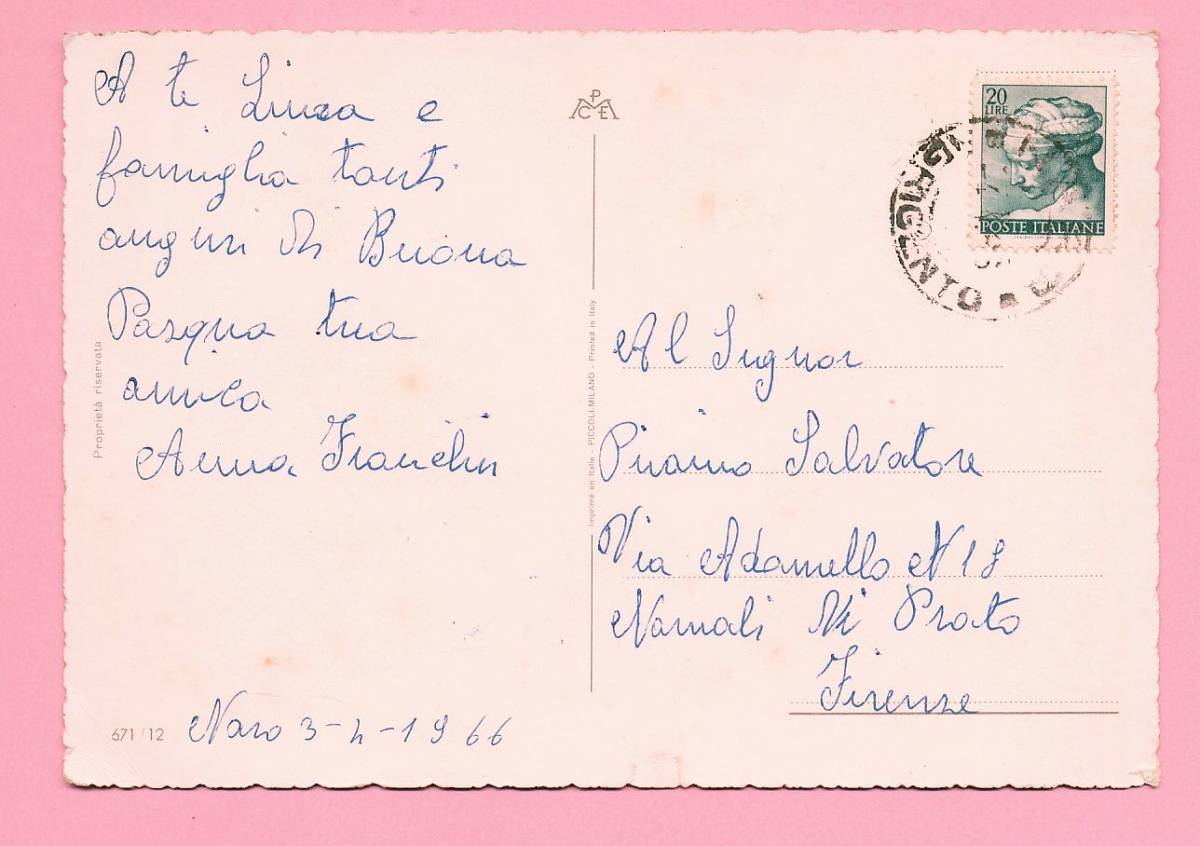 A te Linea e
famiglia tanti
auguri di Buona
Pasqua tua
amica
Anna Franchin
Proprietà riservata
671/12
Naro 3-4-1966
PCE
Imprimé en Italie - PICCOLI-MILANO - Printed in Italy
20
LIRE
POSTE ITALIANE
AGRIGENTO
Al Signor
Piraino Salvatore
Via Adamello N 18
Di Prato
Firenze